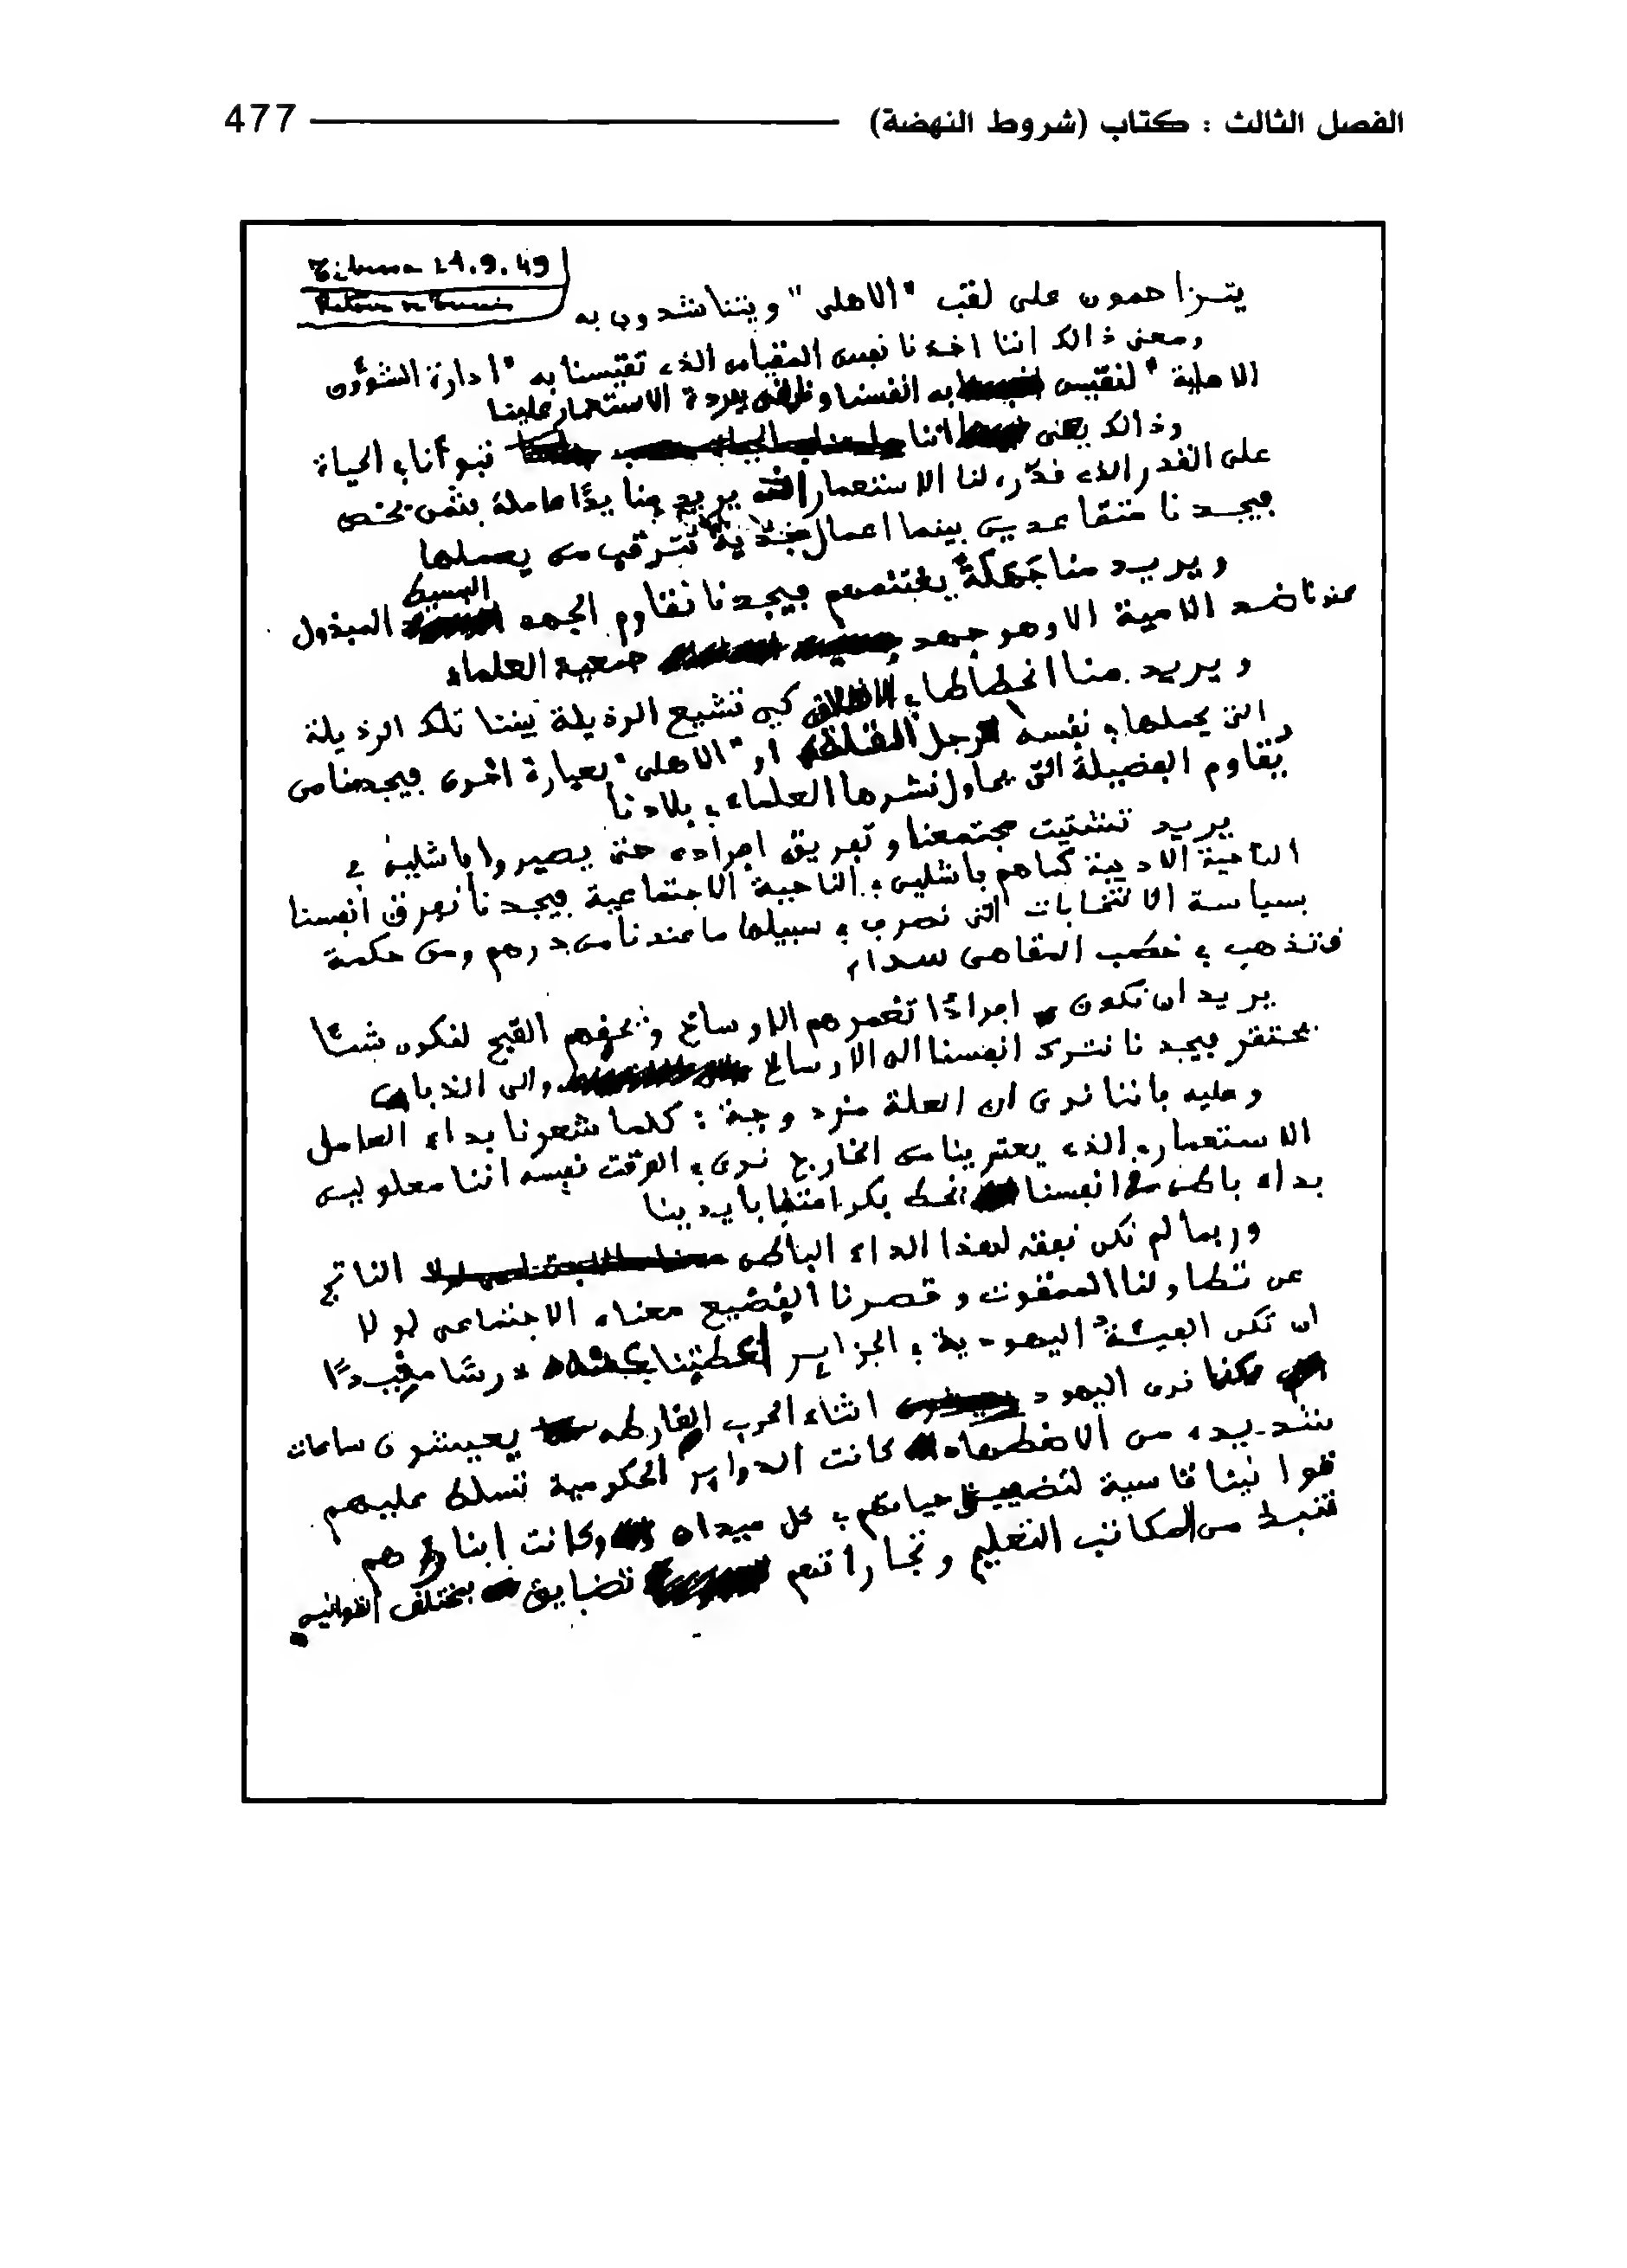 الفصل الثالث : كتاب (شروط النهضة) 477
Tébessa 21.9.49
Retour de Tunis
يتزاحمون على لقب "الاهلى" ويتناشدون به
ومعنى ذالك اننا اخذنا نفس المقياس الذى تقيسنا به "ادارة الشؤون
الاهلية" لنقيس به انفسنا و الاستعمار علينا
وذالك يعنى اننا نبوأنا فى الحياة
على القدر الذى قدّره لنا الاستعمار يريد منا يدًا عاملة بثمن بخص
فيجدنا متقاعدين بينما اعمال تترقب من يعملها
ويريد منا جهلة يغتنمهم فيجدنا نقاوم الجهد البسيط المبذول
عندنا ضد الامية الا وهو جهد جمعية العلماء
ويريد منا انحطاطا فى الاخلاق كى تشيع الرذيلة بيننا تلك الرذيلة
التى يحملها فى نفسه رجل القلة او "الاهلى" بعبارة اخرى فيجد منا من
يقاوم الفضيلة التى يحاول نشرها العلماء فى بلادنا
يريد تشتيت مجتمعنا وتفريق افراده حتى يصيروا فاشلين فى
الناحية الادبية كما هم فاشلين فى الناحية الاجتماعية فيجدنا نفرق انفسنا
بسياسة الانتخابات التى نصرف فى سبيلها ما عندنا من درهم ومن حكمة
فتذهب فى خطب المقاهى سداء
يريد ان نكون افرادًا تغمرهم الاوساخ و القبح لنكون شيئا
يحتقر فيجدنا نترك انفسنا الى الاوساخ والى الذباب
وعليه فاننا نرى ان العلة مزدوجة : كلما شعرنا بداء العامل
الاستعمارى الذى يعترينا من الخارج نرى فى الوقت نفسه اننا معلولين
بداء باطن من انفسنا نحط بكرامتنا بأيدينا
وربما لم نكن نفقه لهذا الداء الباطن الناتج
عن تطاولنا الممقوت وقصرنا الفضيع معناه الاجتماعى لو لا
ان تكن العيشة اليهودية فى الجزاير اعطتنا درسًا مفيدًا
كنا نرى اليهود اثناء الحرب الفارطه يعيشون ساعات
شديده من الاضطهاد كانت الدواير الحكومية تسلط عليهم
قوانينا قاسية لتضييق حياتهم فى كل ميدان وكانت ابناؤهم
تنبط من المكاتب التعليم وتجاراتهم تضايق بمختلف القوانين